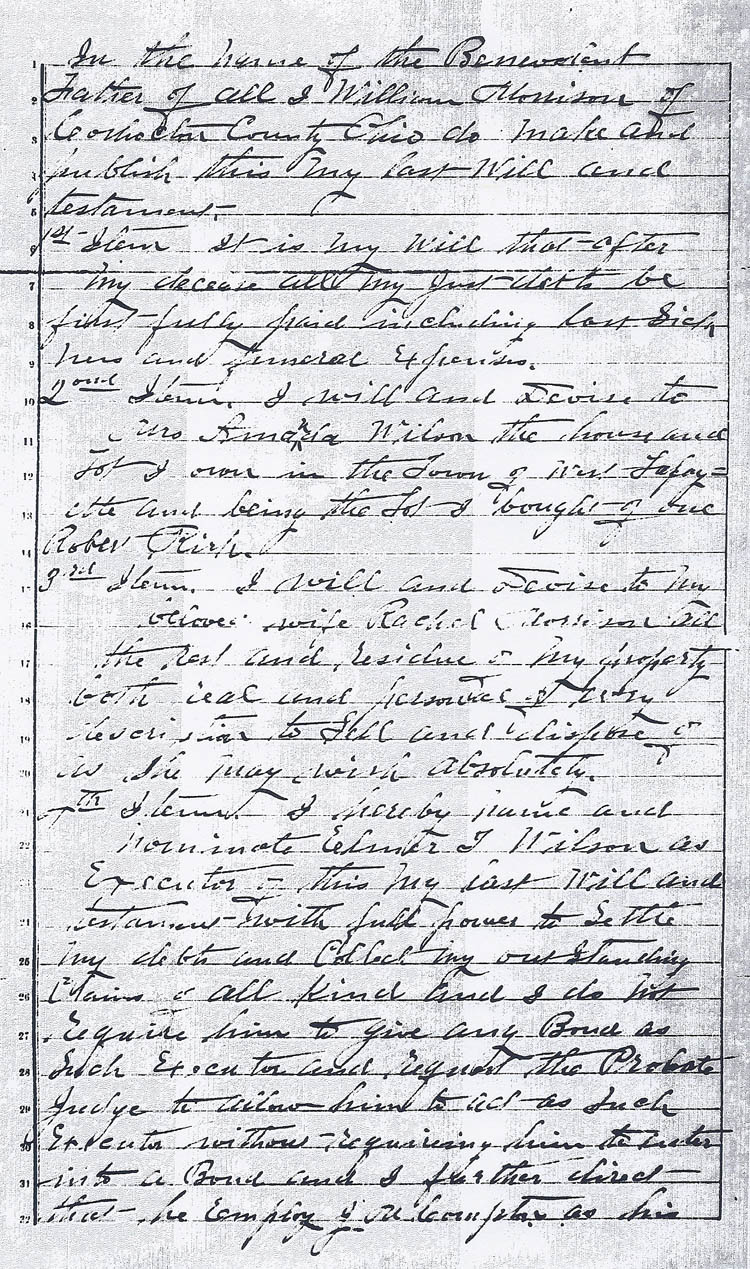 1 In the name of the Benevolent
2 Father of all I William Morrison of
3 Coshocton County Ohio do make and
4 publish this my last Will and
5 testament.
6 1st Item It is my Will that after
7 my decease all my just debts be
8 first fully paid including last Sick
9 ness and funeral Expenses.
10 2ond Item. I will and Devise to
11 Mrs Amanda Wilson the house and
12 Lot I own in the Town of West Lafay=
13 ette and being the Lot I bought of one
14 Robert Kirk.
15 3rd Item. I will and Devise to my
16 beloved wife Rachel Morrison all
17 the rest and residue of my property
18 both real and personal of every
19 description to Sell and dispose of
20 as She may wish absolutely.
21 4th Item. I hereby name and
22 nominate Elmer T Wilson as
23 Executor of this my last Will and
24 testament with full power to Settle
25 my debts and Collect my out Standing
26 Claims of all Kind and I do not
27 require him to give any Bond as
28 Such Executor and request the Probate
29 Judge to allow him to act as Such
30 Executor without requiring him to enter
31 into a Bond and I further direct
32 that he Employ as his